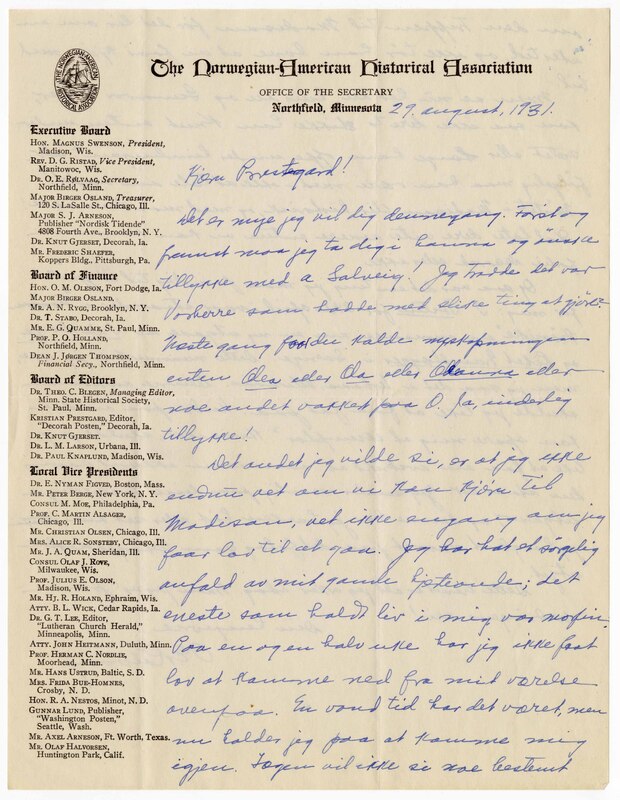 THE NORWEGIAN-AMERICAN HISTORICAL ASSOCIATION
The Norwegian-American Historical Association
OFFICE OF THE SECRETARY
Northfield, Minnesota 29. august, 1931.
Executive Board
HON. MAGNUS SWENSON, President,
Madison, Wis.
REV. D. G. RISTAD, Vice President,
Manitowoc, Wis.
DR. O. E. RØLVAAG, Secretary,
Northfield, Minn.
MAJOR BIRGER OSLAND, Treasurer,
120 S. LaSalle St., Chicago, Ill.
MAJOR S. J. ARNESON,
Publisher "Nordisk Tidende"
4808 Fourth Ave., Brooklyn, N. Y.
DR. KNUT GJERSET, Decorah, Ia.
MR. FREDERIC SHAEFER,
Koppers Bldg., Pittsburgh, Pa.
Board of Finance
HON. O. M. OLESON, Fort Dodge, Ia.
MAJOR BIRGER OSLAND.
MR. A. N. RYGG, Brooklyn, N. Y.
DR. T. STABO, Decorah, Ia.
MR. E. G. QUAMME, St. Paul, Minn.
PROF. P. O. HOLLAND,
Northfield, Minn.
DEAN J. JØRGEN THOMPSON,
Financial Secy., Northfield, Minn.
Board of Editors
DR. THEO. C. BLEGEN, Managing Editor,
Minn. State Historical Society,
St. Paul, Minn.
KRISTIAN PRESTGARD, Editor,
"Decorah Posten," Decorah, Ia.
DR. KNUT GJERSET.
DR. L. M. LARSON, Urbana, Ill.
DR. PAUL KNAPLUND, Madison, Wis.
Local Vice Presidents
DR. E. NYMAN FIGVED, Boston, Mass.
MR. PETER BERGE, New York, N. Y.
CONSUL M. MOE, Philadelphia, Pa.
PROF. C. MARTIN ALSAGER,
Chicago, Ill.
MR. CHRISTIAN OLSEN, Chicago, Ill.
MRS. ALICE R. SONSTEBY, Chicago, Ill.
MR. J. A. QUAM, Sheridan, Ill.
CONSUL OLAF J. ROVE,
Milwaukee, Wis.
PROF. JULIUS E. OLSON,
Madison, Wis.
MR. HJ. R. HOLAND, Ephraim, Wis.
ATTY. B. L. WICK, Cedar Rapids, Ia.
DR. G. T. LEE, Editor,
"Lutheran Church Herald,"
Minneapolis, Minn.
ATTY. JOHN HEITMANN, Duluth, Minn.
PROF. HERMAN C. NORDLIE,
Moorhead, Minn.
MR. HANS USTRUD, Baltic, S. D.
MRS. FRIDA BUE-HOMNES,
Crosby, N. D.
HON. R. A. NESTOS, Minot, N. D.
GUNNAR LUND, Publisher,
"Washington Posten,"
Seattle, Wash.
MR. AXEL ARNESON, Ft. Worth, Texas.
MR. OLAF HALVORSEN,
Huntington Park, Calif.
Kjære Prestgard!
Det er mye jeg vil dig dennegang. Først og
fremst maa jeg ta dig i haanna og ønske
tillykke med a Salveig! Jeg trodde det var
Vorherre som hadde med slike ting at gjøre.
Næste gang faar du kalde nyskapningen
enten Olea eller Ola eller eller
noe andet vakkert paa O. Ja, inderlig
tillykke!
Det andet jeg vilde si, er at jeg ikke
endnu vet om vi kan kjøre til
Madison, vet ikke engang om jeg
faar lov til at gaa. Jeg har hat et sørgelig
anfald av mit gamle hjerteonde; det
eneste som holdt liv i mig var morfin.
Paa en og en halv uke har jeg ikke faat
lov at komme ned fra mit værelse
ovenpaa. En vond tid har det været, men
nu holder jeg paa at komme mig
igjen. Logen vil ikke si noe bestemt